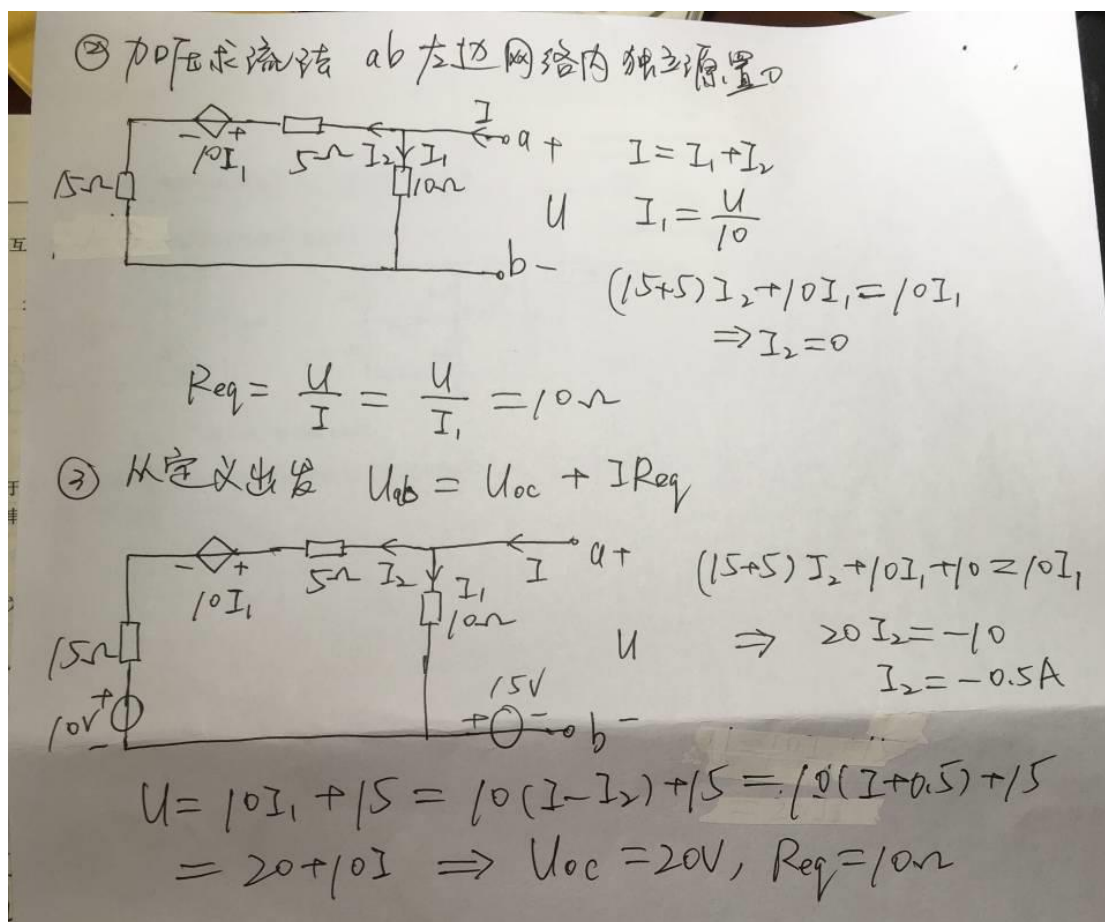 ② 加压求流法 ab左边网络内独立源置0
I
- + a +
10I₁ 5Ω I₂ I₁
15Ω 10Ω
U
b -
I = I₁ + I₂
I₁ = U/10
(15+5)I₂+10I₁=10I₁
⇒I₂=0
Req = U/I = U/I₁ = 10Ω
③ 从定义出发 Uab = Uoc + IReq
- + a +
10I₁ 5Ω I₂ I₁ I
10Ω
15Ω
U
10V + -
15V
+ - b -
(15+5)I₂+10I₁+10=10I₁
⇒ 20I₂=-10
I₂=-0.5A
U= 10I₁ +15 = 10(I-I₂)+15 = 10(I+0.5)+15
= 20+10I ⇒ Uoc =20V, Req=10Ω
互